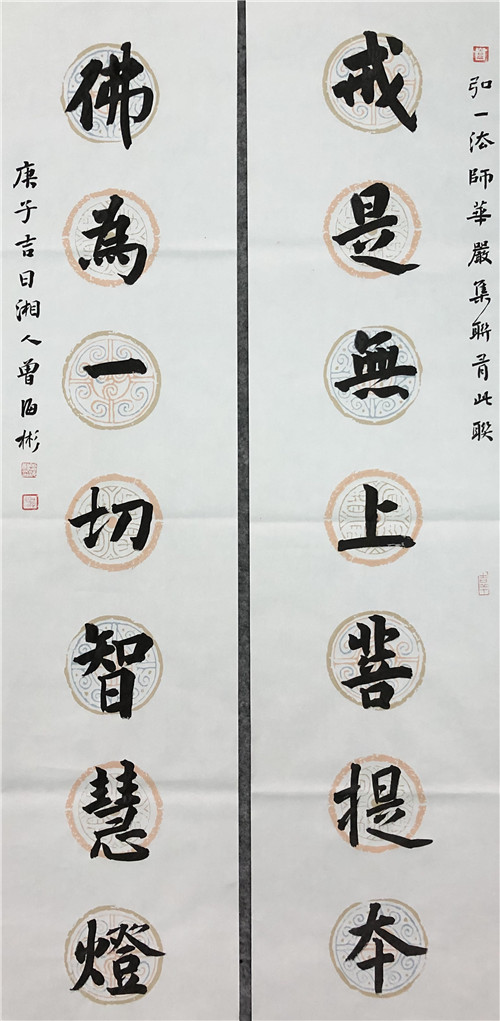 弘一法師華嚴集聯有此聯
戒是無上菩提本
佛為一切智慧燈
庚子吉日湘人曾海彬